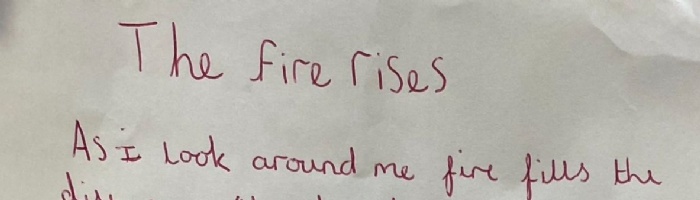 The fire rises
As I look around me fire fills the